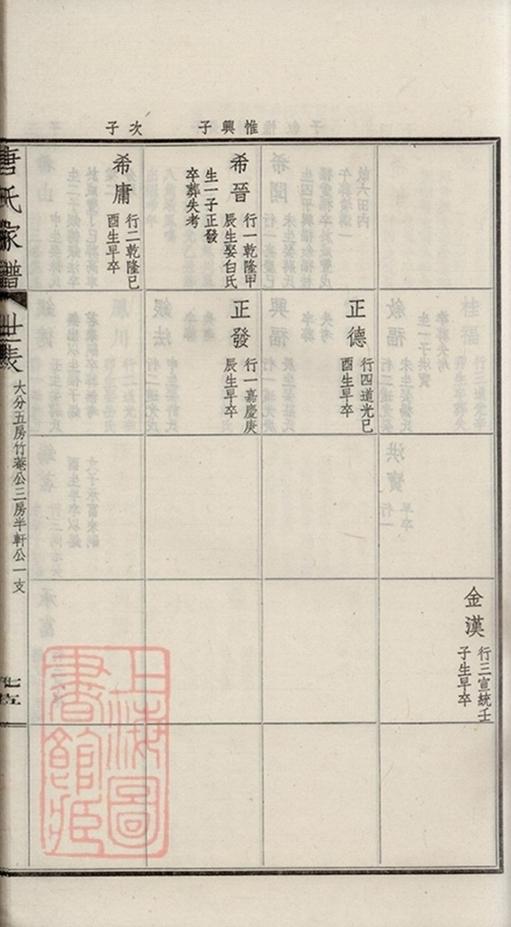 惟興子
次子
金漢
行三宣統壬
子生早卒
正德
行四道光己
酉生早卒
希晉
行一乾隆甲
辰生娶白氏
生一子正發
卒葬失考
正發
行一嘉慶庚
辰生早卒
希庸
行二乾隆己
酉生早卒
唐氏家譜
世表
大分五房竹菴公三房半軒公一支
上海圖
書館藏